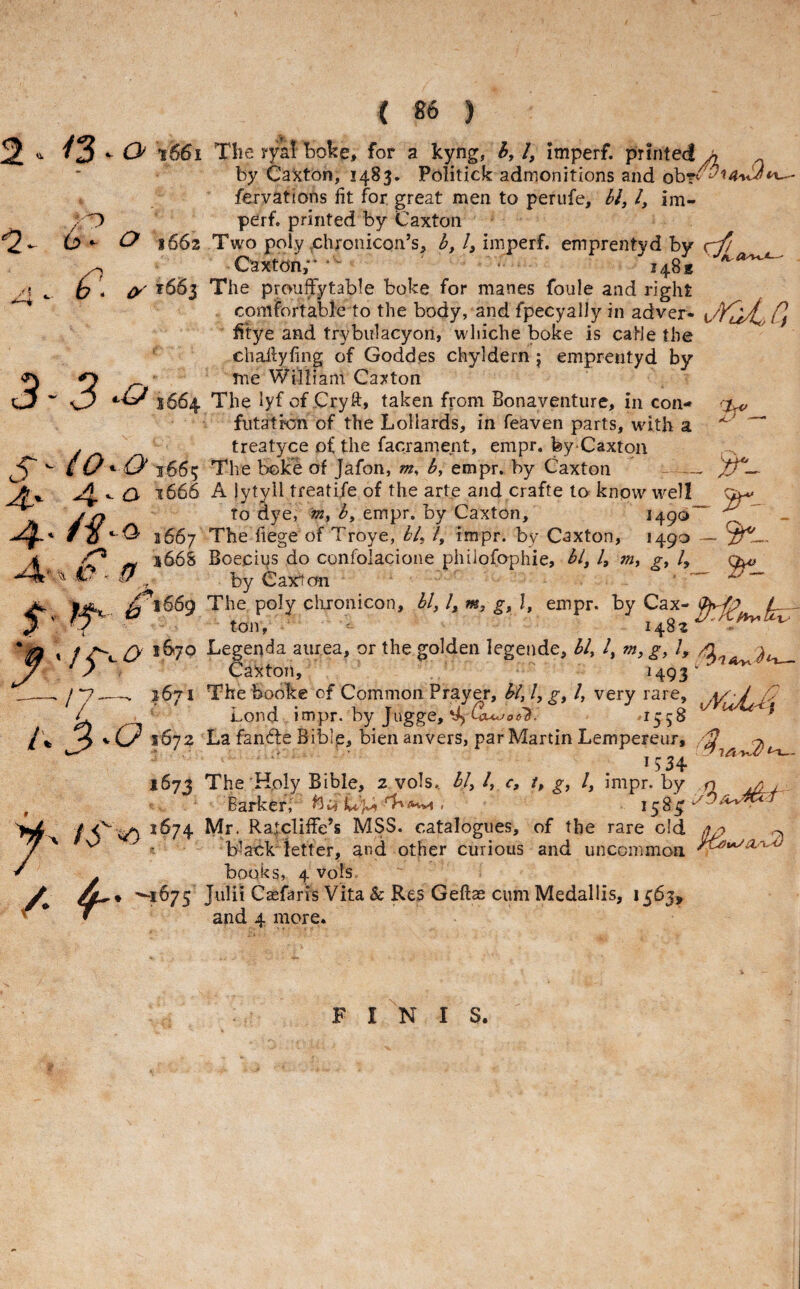 ( 86 )
2 . 13 . 0 1661 The ryal boke, for a kyng, b, l, imperf. printed
by Caxton, 1483. Politick admonitions and ob-
servations fit for great men to peruse, bl, l, im-
perf. printed by Caxton
2 . 6 . 0 1662 Two poly chronicon's, b, l, imperf. emprentyd by
Caxton, 148
4 . 6 . 0 1663 The prouffytable boke for manes soule and right
comfortable to the body, and specyally in adver-
sitye and trybulacyon, whiche boke is calle the
chastysing of Goddes chyldern ; emprentyd by
me William Caxton
3 - 3 . 0 1664 The lyf of Cryst, taken from Bonaventure, in con-
futation of the Lollards, in seaven parts, with a
treatyce of the sacrament, empr. by Caxton
5 - 10 . 0 1665 The boke of Jason, m, b, empr. by Caxton
4 . 4 . 0 1666 A lytyll treatise of the arte and crafte to know well
to dye, m, b, empr. by Caxton, 1490
4 . 18 . 0 1667 The siege of Troye, bl, l, impr. by Caxton, 1490
4 . 6 . 0 1668 Boecius do consolacione philosophie, bl, l, m, g, l,
by Caxton
1669 The poly chronicon, bl, l, m, g, l, empr. by Cax-
ton, 1482
5 . 15 . 0 1670 Legenda aurea, or the golden legende, bl, l, m, g, l,
Caxton, 1493
— 17 — 1671 The Booke of Common Prayer, bl, l, g, l, very rare,
Lond impr. by Jugge, & Cawood. 1558
1 . 3 . 0 1672 La sancte Bible, bien anvers, par Martin Lempereur,
1534
1673 The Holy Bible, 2 vols. bl, l, c, t, g, l, impr. by
Barker, 1585
7 . 15 . 0 1674 Mr. Ratcliffe's MSS. catalogues, of the rare old
black letter, and other curious and uncommon
books, 4 vols.
1 . 4 . 1675 Julii Cæsaris Vita & Res Gestæ cum Medallis, 1563,
and 4 more.
FINIS.